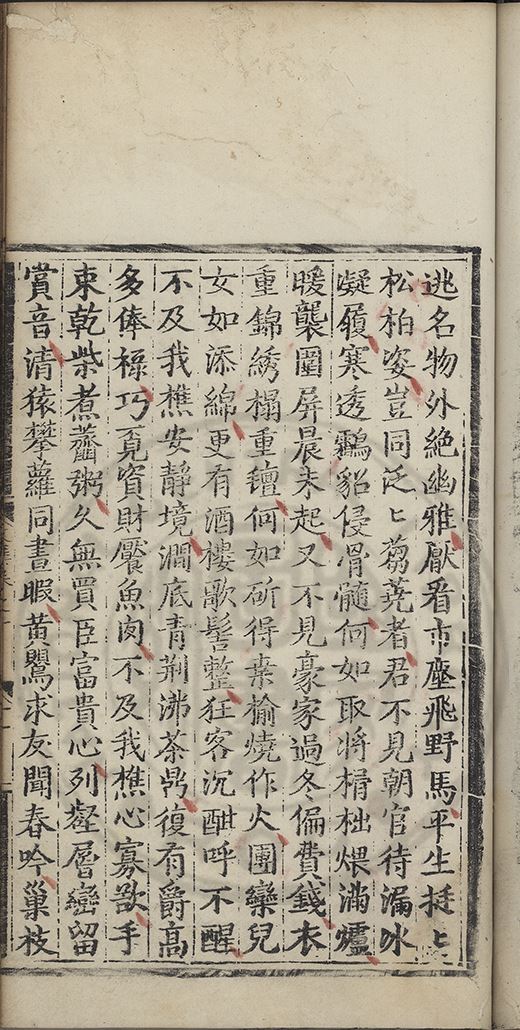 逃名物外絶幽雅厭看市塵飛野馬平生挺〻
松柏姿豈同泛〻蒭蕘者君不見朝官待漏氷
凝履寒透鸘貂侵骨髓何如取將榾柮煨滿爐
暖襲圍屏晨未起又不見豪家過冬偏費錢衣
重錦綉榻重氊何如斫得桒榆燒作火團欒兒
女如添綿更有酒樓歌髻整狂客沉酣呼不醒
不及我樵安静境澗底青荆沸茶鼎復有爵高
多俸祿巧覔資財饜魚肉不及我樵心寡欲手
束乾柴煮虀粥久無買臣富貴心列壑層巒留
賞音清猿攀蘿同晝暇黄鸎求友聞春吟巢枝